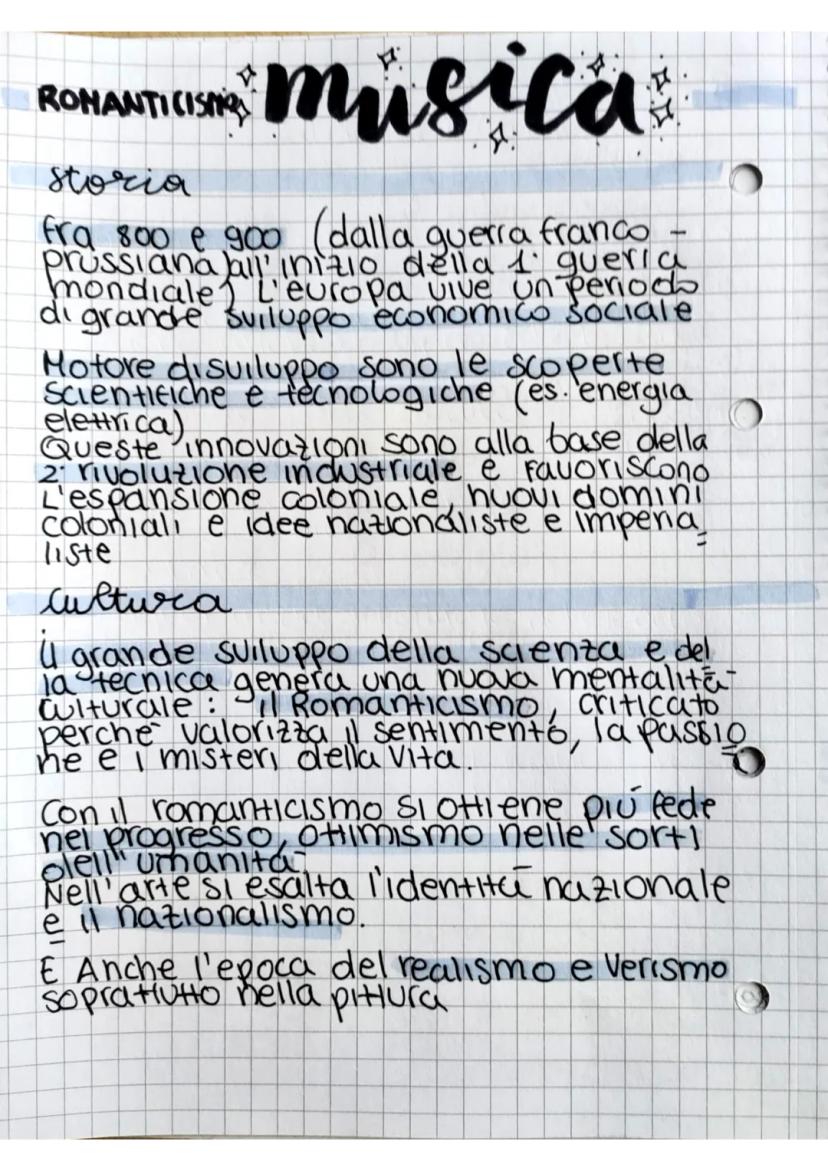 ROMANTICISMO musica
storia
fra 800 e 900 (dalla guerra franco -
prussiana all'inizio della 1° guerra
mondiale) L'europa vive un periodo
di grande sviluppo economico sociale
Motore di sviluppo sono le scoperte
scientifiche e tecnologiche (es. energia
elettrica)
Queste innovazioni sono alla base della
2° rivoluzione industriale e favoriscono
L'espansione coloniale, nuovi domini
coloniali e idee nazionaliste e imperia=
liste
cultura
il grande sviluppo della scienza e del
la tecnica genera una nuova mentalità
culturale: il Romanticismo, criticato
perchè valorizza il sentimento, la passio
ne e i misteri della vita.
Con il romanticismo si ottiene più fede
nel progresso, ottimismo nelle sorti
dell'umanità
Nell'arte si esalta l'identità nazionale
e il nazionalismo.
È Anche l'epoca del realismo e Verismo
soprattutto nella pittura